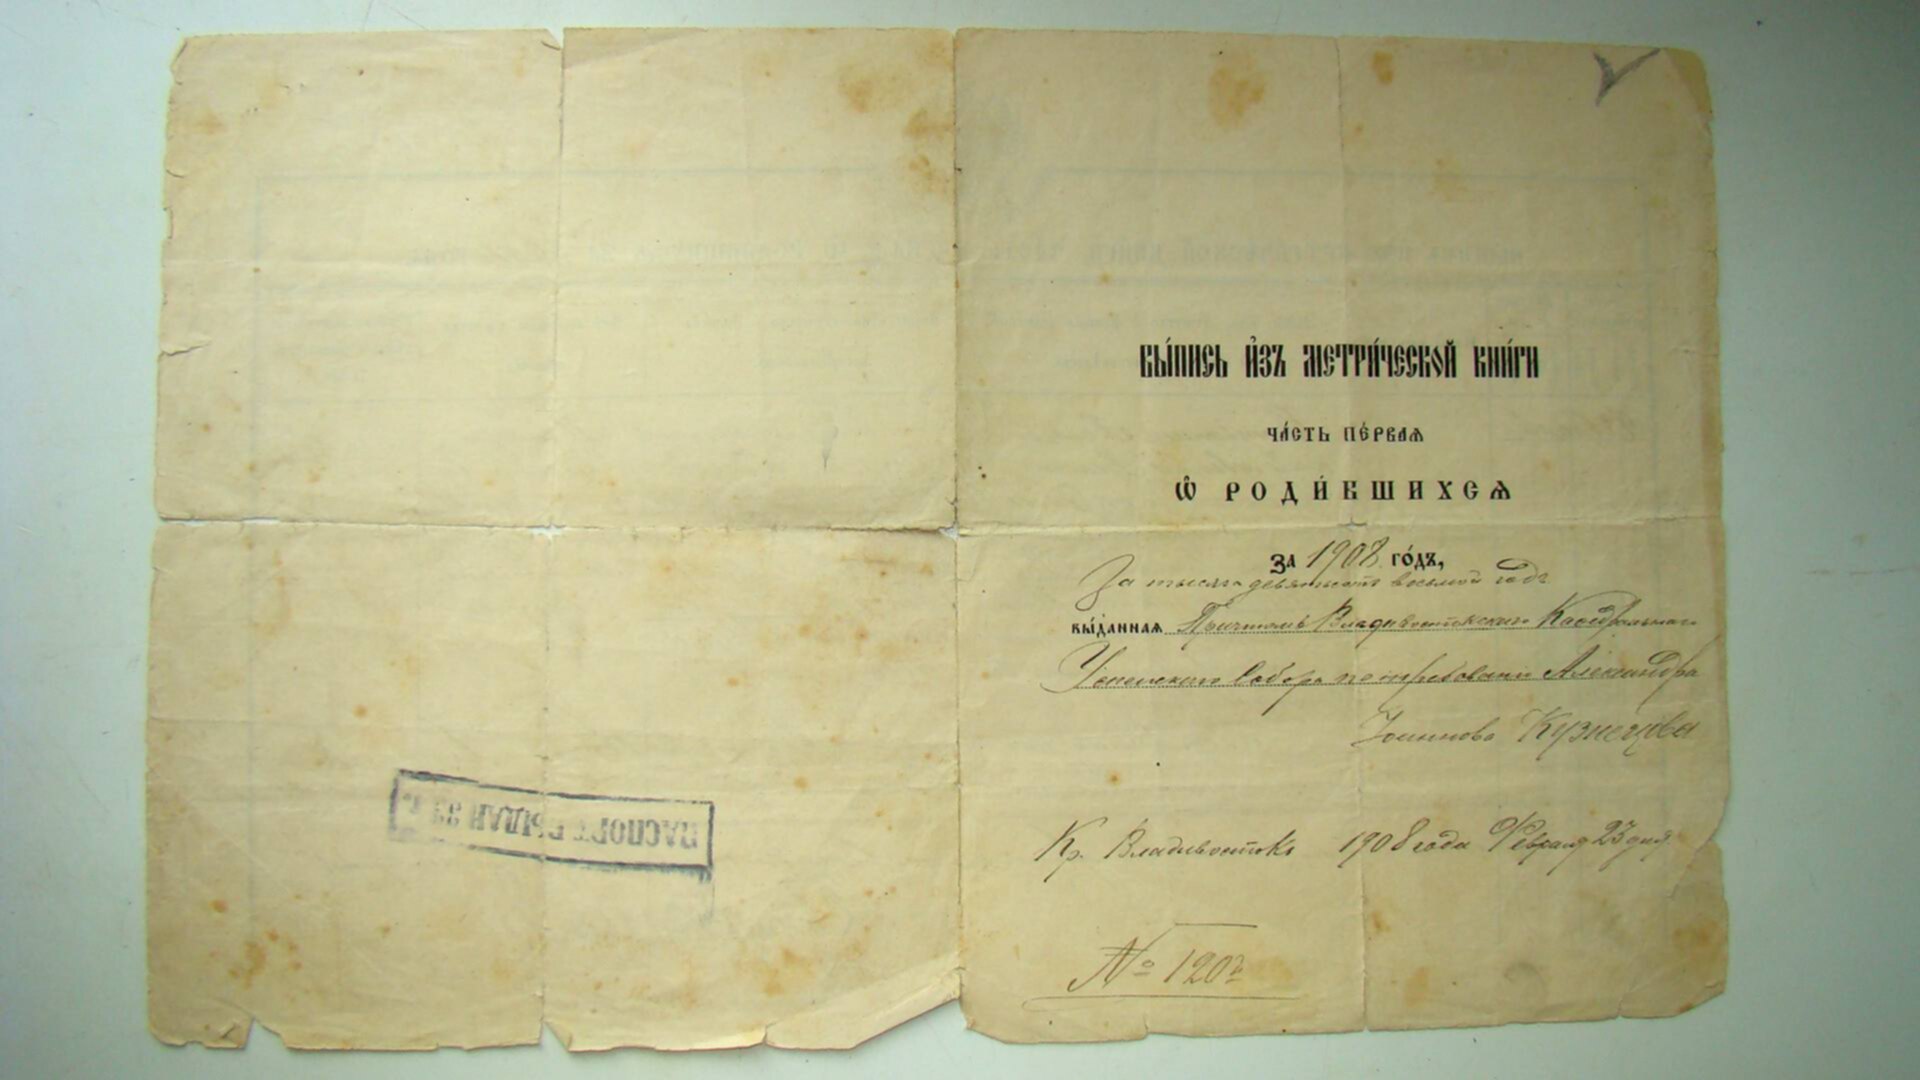 ВЫ́ПИСЬ И҆ЗЪ МЕТРИ́ЧЕСКОЙ КНИ́ГИ
ЧА́СТЬ ПЕ́РВАѦ
Ѽ РОДИ́ВШИХСѦ
ЗА 1908 ГО́ДЪ,
За тысяча девятьсотъ восьмой годъ
ВЫ́ДАННАѦ Причтомъ Владивостокскаго Каѳедральнаго
Успенскаго Собора по требованію Александра
Кузнецова
Кр. Владивостокъ 1908 года Февраля 23 дня
№ 120
ПАСПОРТ ВЫДАН 33 г.